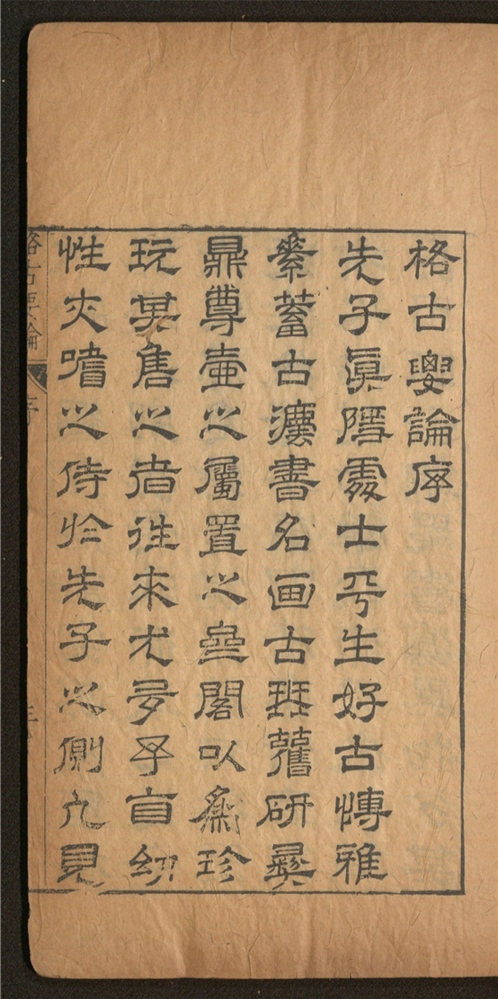 格古要論序
先子眞隱處士平生好古愽雅
素蓄古灋書名画古琴舊研彝
鼎尊壷之屬置之齋閣以為珍
玩其售之者徃來尤多予自幼
性亦嗜之侍於先子之側凡見
格古要論 序